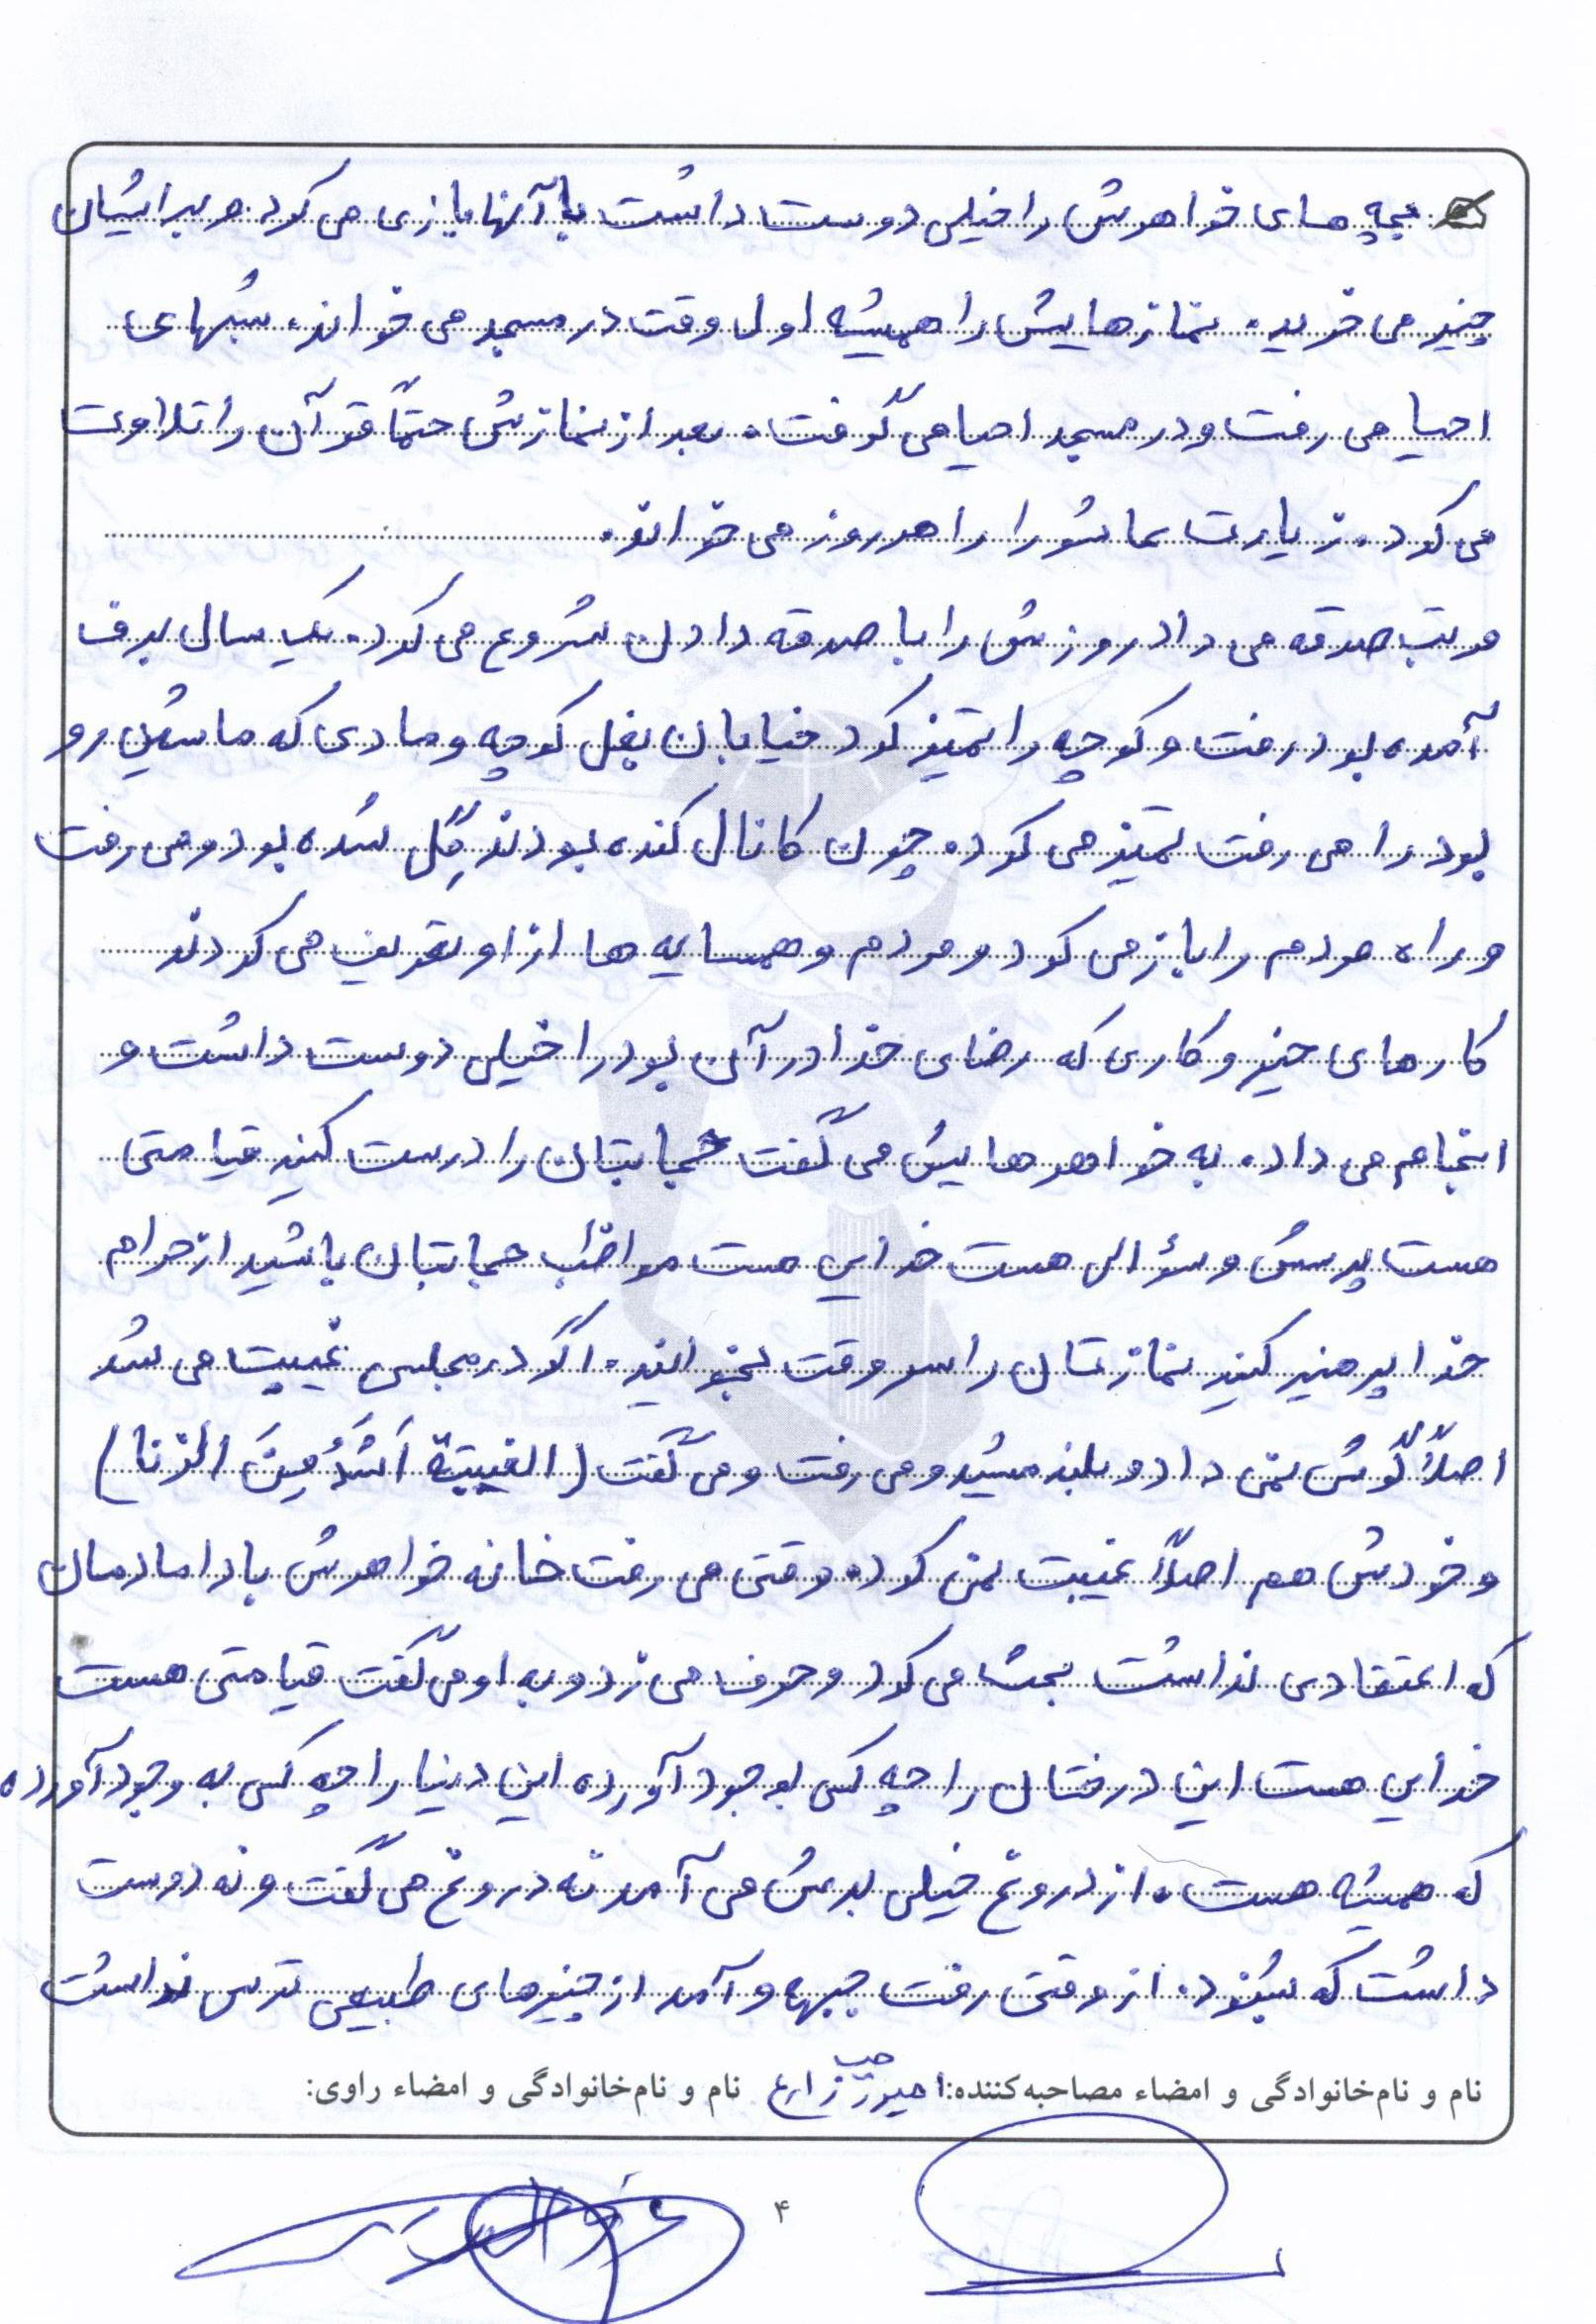 بچه های خواهرش را خیلی دوست داشت با آنها بازی می کرد و برایشان
چیز می خرید. نمازهایش را همیشه اول وقت در مسجد می خواند، شبهای
احیا می رفت و در مسجد احیا می گرفت. بعد از نمازش حتماً قرآن را تلاوت
می کرد. زیارت عاشورا را هر روز می خواند.
مرتب صدقه می داد روزش را با صدقه دادن شروع می کرد. یک سال برف
آمده بود رفت و کوچه را تمیز کرد خیابان بغل کوچه و مادی که ماشین رو
بود را می رفت تمیز می کرد. چون کانال کنده بودند گِل شده بود و می رفت
و راه مردم را باز می کرد و مردم و همسایه ها از او تعریف می کردند
کارهای خیر و کاری که رضای خدا در آن بود را خیلی دوست داشت و
انجام می داد. به خواهرهایش می گفت حجابتان را درست کنید قیامتی
هست پرسش و سؤالی هست خدایی هست مواظب حجابتان باشید از حرام
خدا پرهیز کنید نمازتان را سر وقت بخوانید. اگر در مجلسی غیبت می شد
اصلاً گوش نمی داد و بلند میشد و می رفت و می گفت (الغیبة اَشَدُ مِنَ الزنا)
و خودش هم اصلاً غیبت نمی کرد. وقتی می رفت خانه خواهرش با دامادمان
که اعتقادی نداشت بحث می کرد و حرف می زد و به او می گفت قیامتی هست
خدایی هست این درختان را چه کسی بوجود آورده این دنیا را چه کسی به وجود آورده
که همیشه هست. از دروغ خیلی بدش می آمد نه دروغ می گفت و نه دوست
داشت که بشنود. از وقتی رفت جبهه و آمد از چیزهای طبیعی ترس نداشت
نام و نام‌خانوادگی و امضاء مصاحبه‌کننده: امیر زارع نام و نام‌خانوادگی و امضاء راوی:
۴